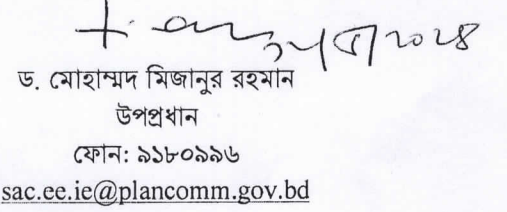 ড. মোহাম্মদ মিজানুর রহমান
উপপ্রধান
ফোন: ৯১৮০৯৯৬
sac.ee.ie@plancomm.gov.bd